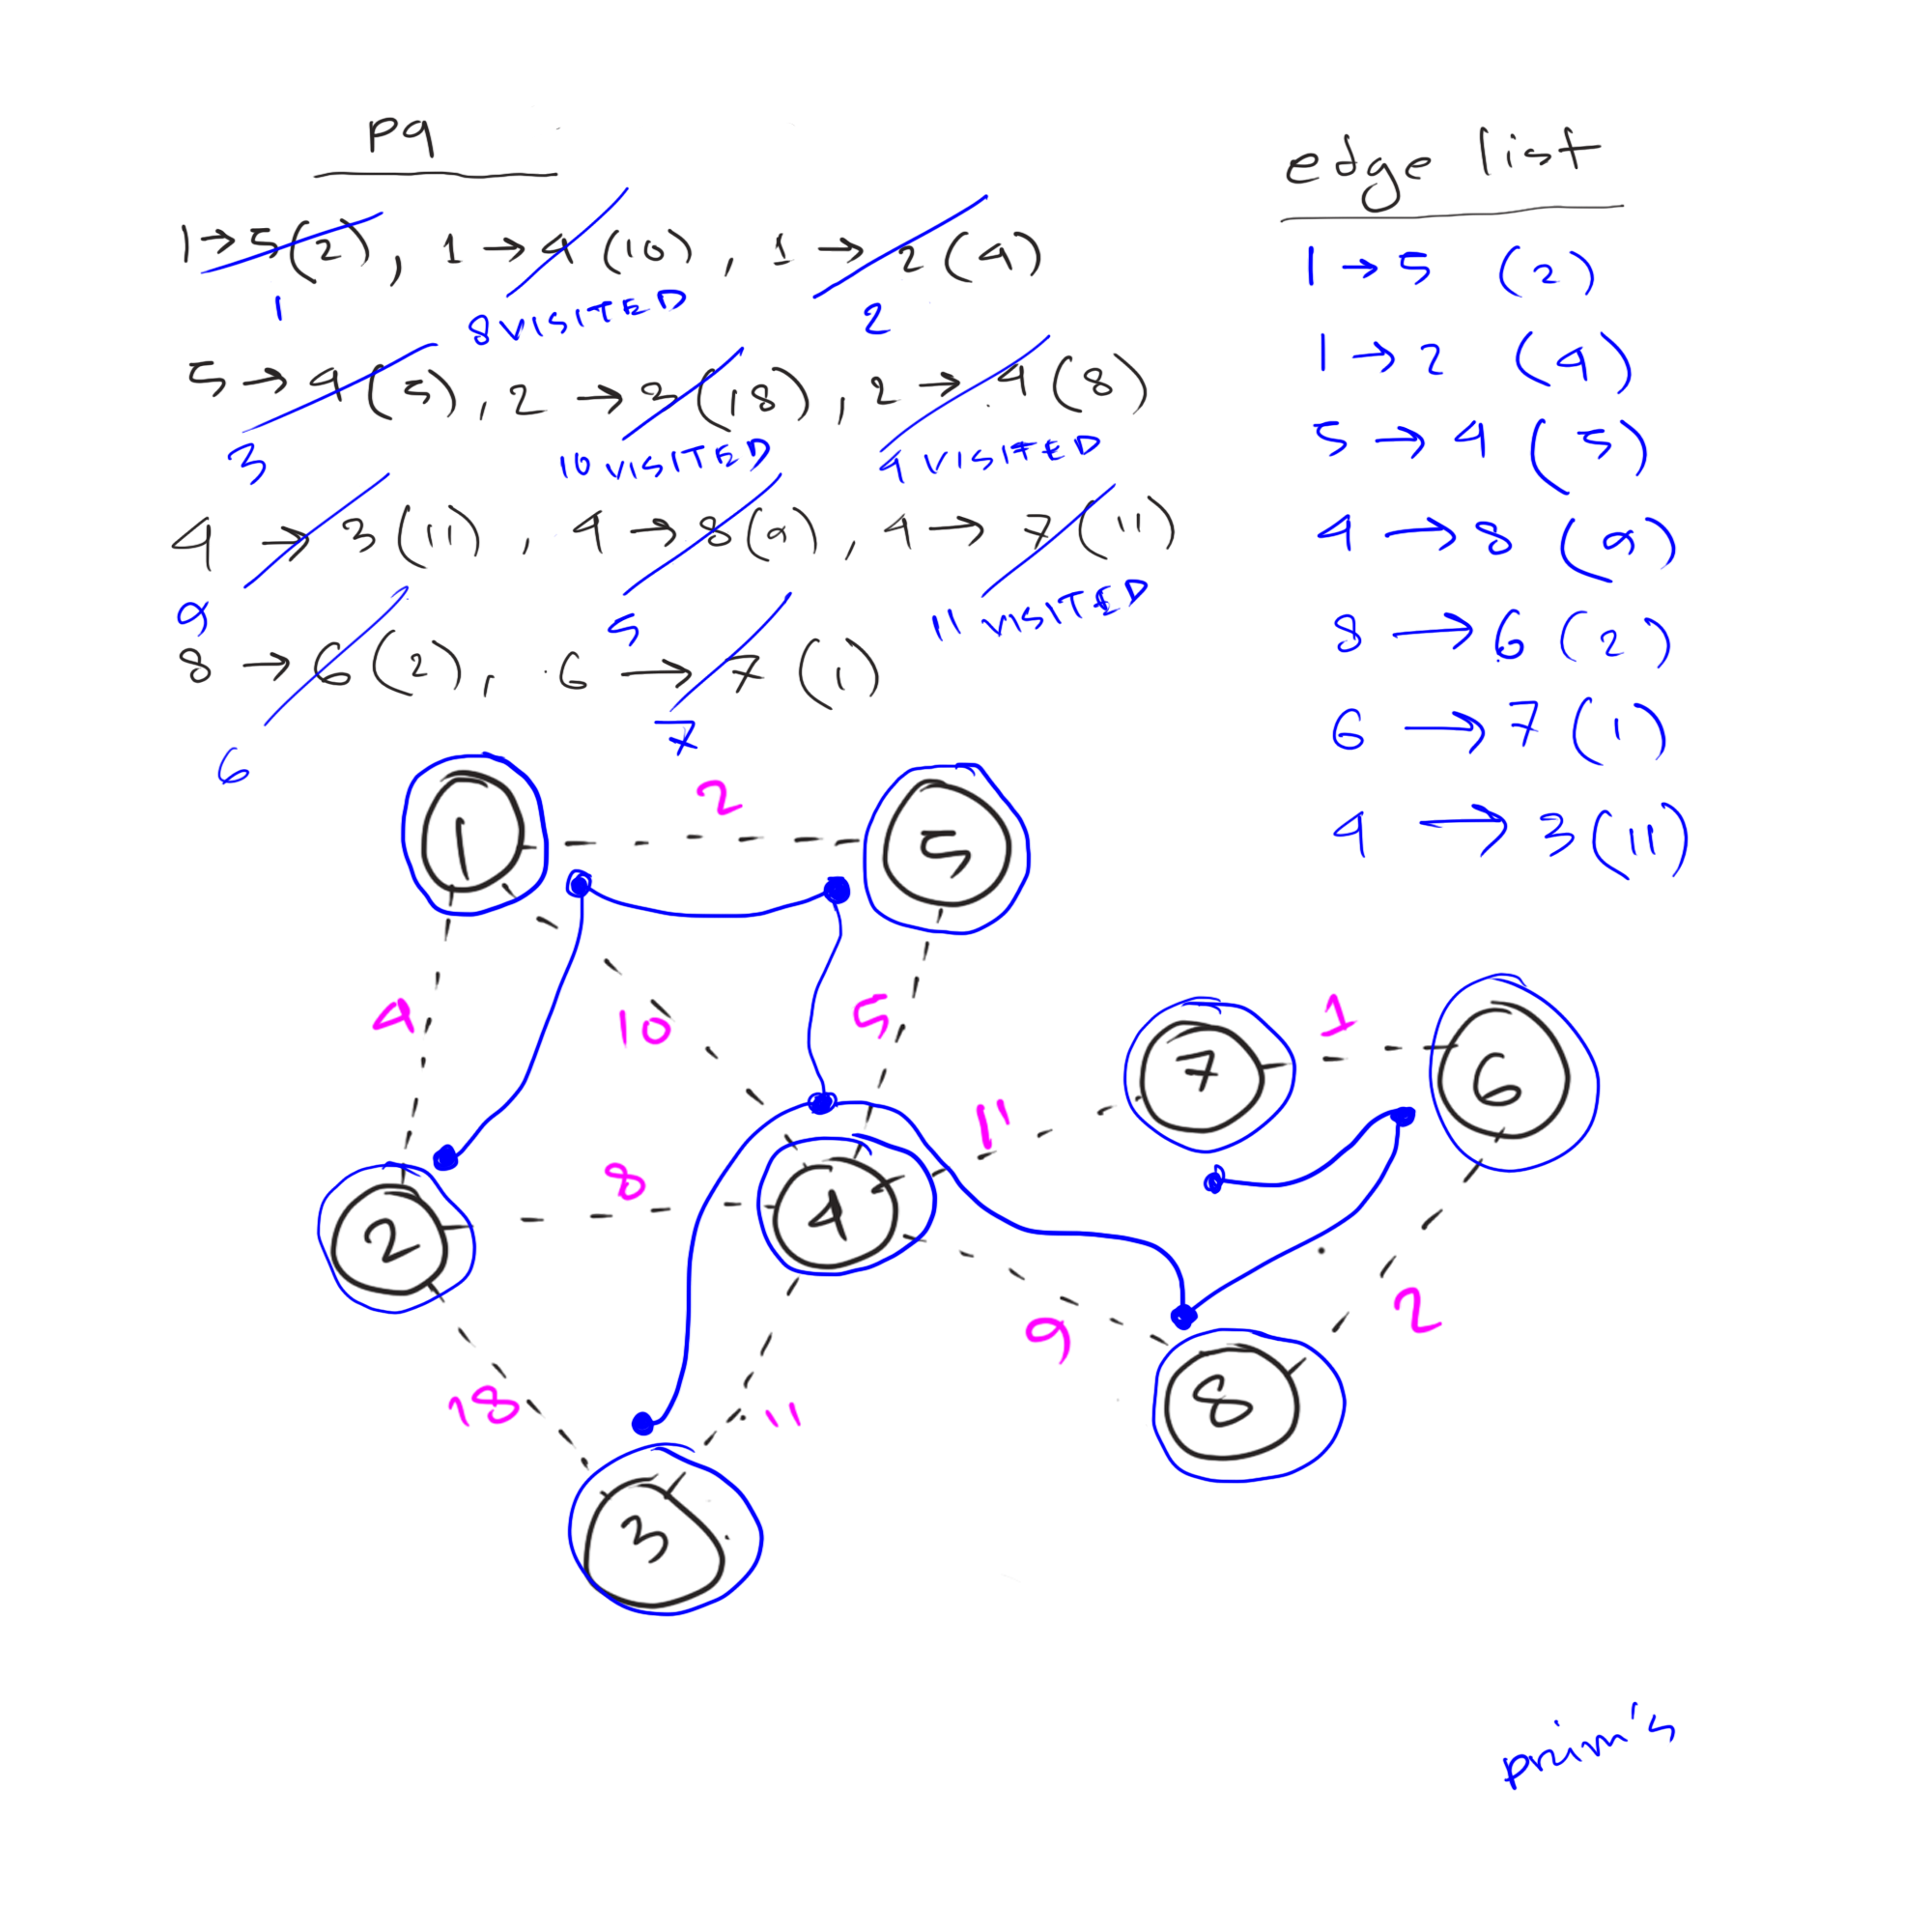 pq
1 → 5 (2), 1 → 4 (10), 1 → 2 (4)
1 8 VISITED 2
5 → 4 (5), 2 → 3 (18), 2 → 4 (8)
3 10 VISITED 4 VISITED
4 → 3 (11), 4 → 8 (9), 4 → 7 (11)
9 5 11 VISITED
8 → 6 (2), 6 → 7 (1)
6 7
edge list
1 → 5 (2)
1 → 2 (4)
5 → 4 (5)
4 → 8 (9)
8 → 6 (2)
6 → 7 (1)
4 → 3 (11)
2
1 5
4 10 5 7 1 6
11
8
2 4
9 2
18 11 8
3
prim's